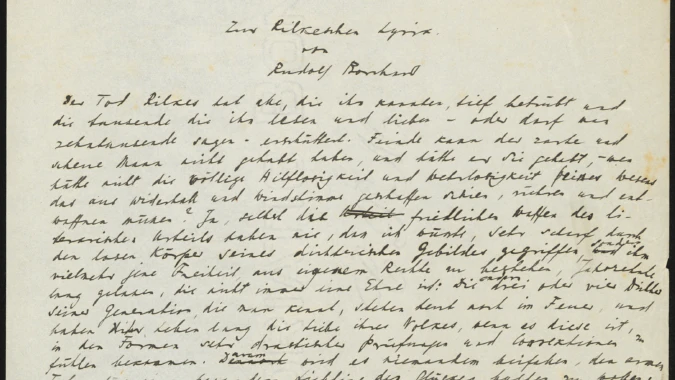 Zur Rilkeschen Lyrik.
von
Rudolf Borchardt
Der Tod Rilkes hat alle, die ihn kannten, tief betrübt und
die tausende die ihn lesen und lieben – oder darf man
zehntausende sagen – erschüttert. Feinde kann der zarte und
scheue Mann nicht gehabt haben, und hätte er sie gehabt, – wen
hätte nicht die völlige Hilflosigkeit und Wehrlosigkeit seines Wesens
das aus Widerhall und Windstimme geschaffen schien, rühren und ent-
waffnen müssen? Ja, selbst die friedlichen Waffen des li-
terarischen Urteils haben nie, das ich wüsste, sehr scharf durch
den losen Körper seines dichterischen Gebildes gegriffen, sondern ihm
vielmehr jene Freiheit, aus eigenem Rechte zu bestehen, Jahrzehnte
lang gelassen, die nicht immer eine Ehre ist: Die andern drei oder vier Dichter
seiner Generation, die man kennt, stehen heut noch im Feuer, und
haben ihr Leben lang die Liebe ihres Volkes, wenn es diese ist,
in den Formen sehr drastischer Prüfungen und Correctionen zu
fühlen bekommen. Darum wird es niemandem einfallen, den armen